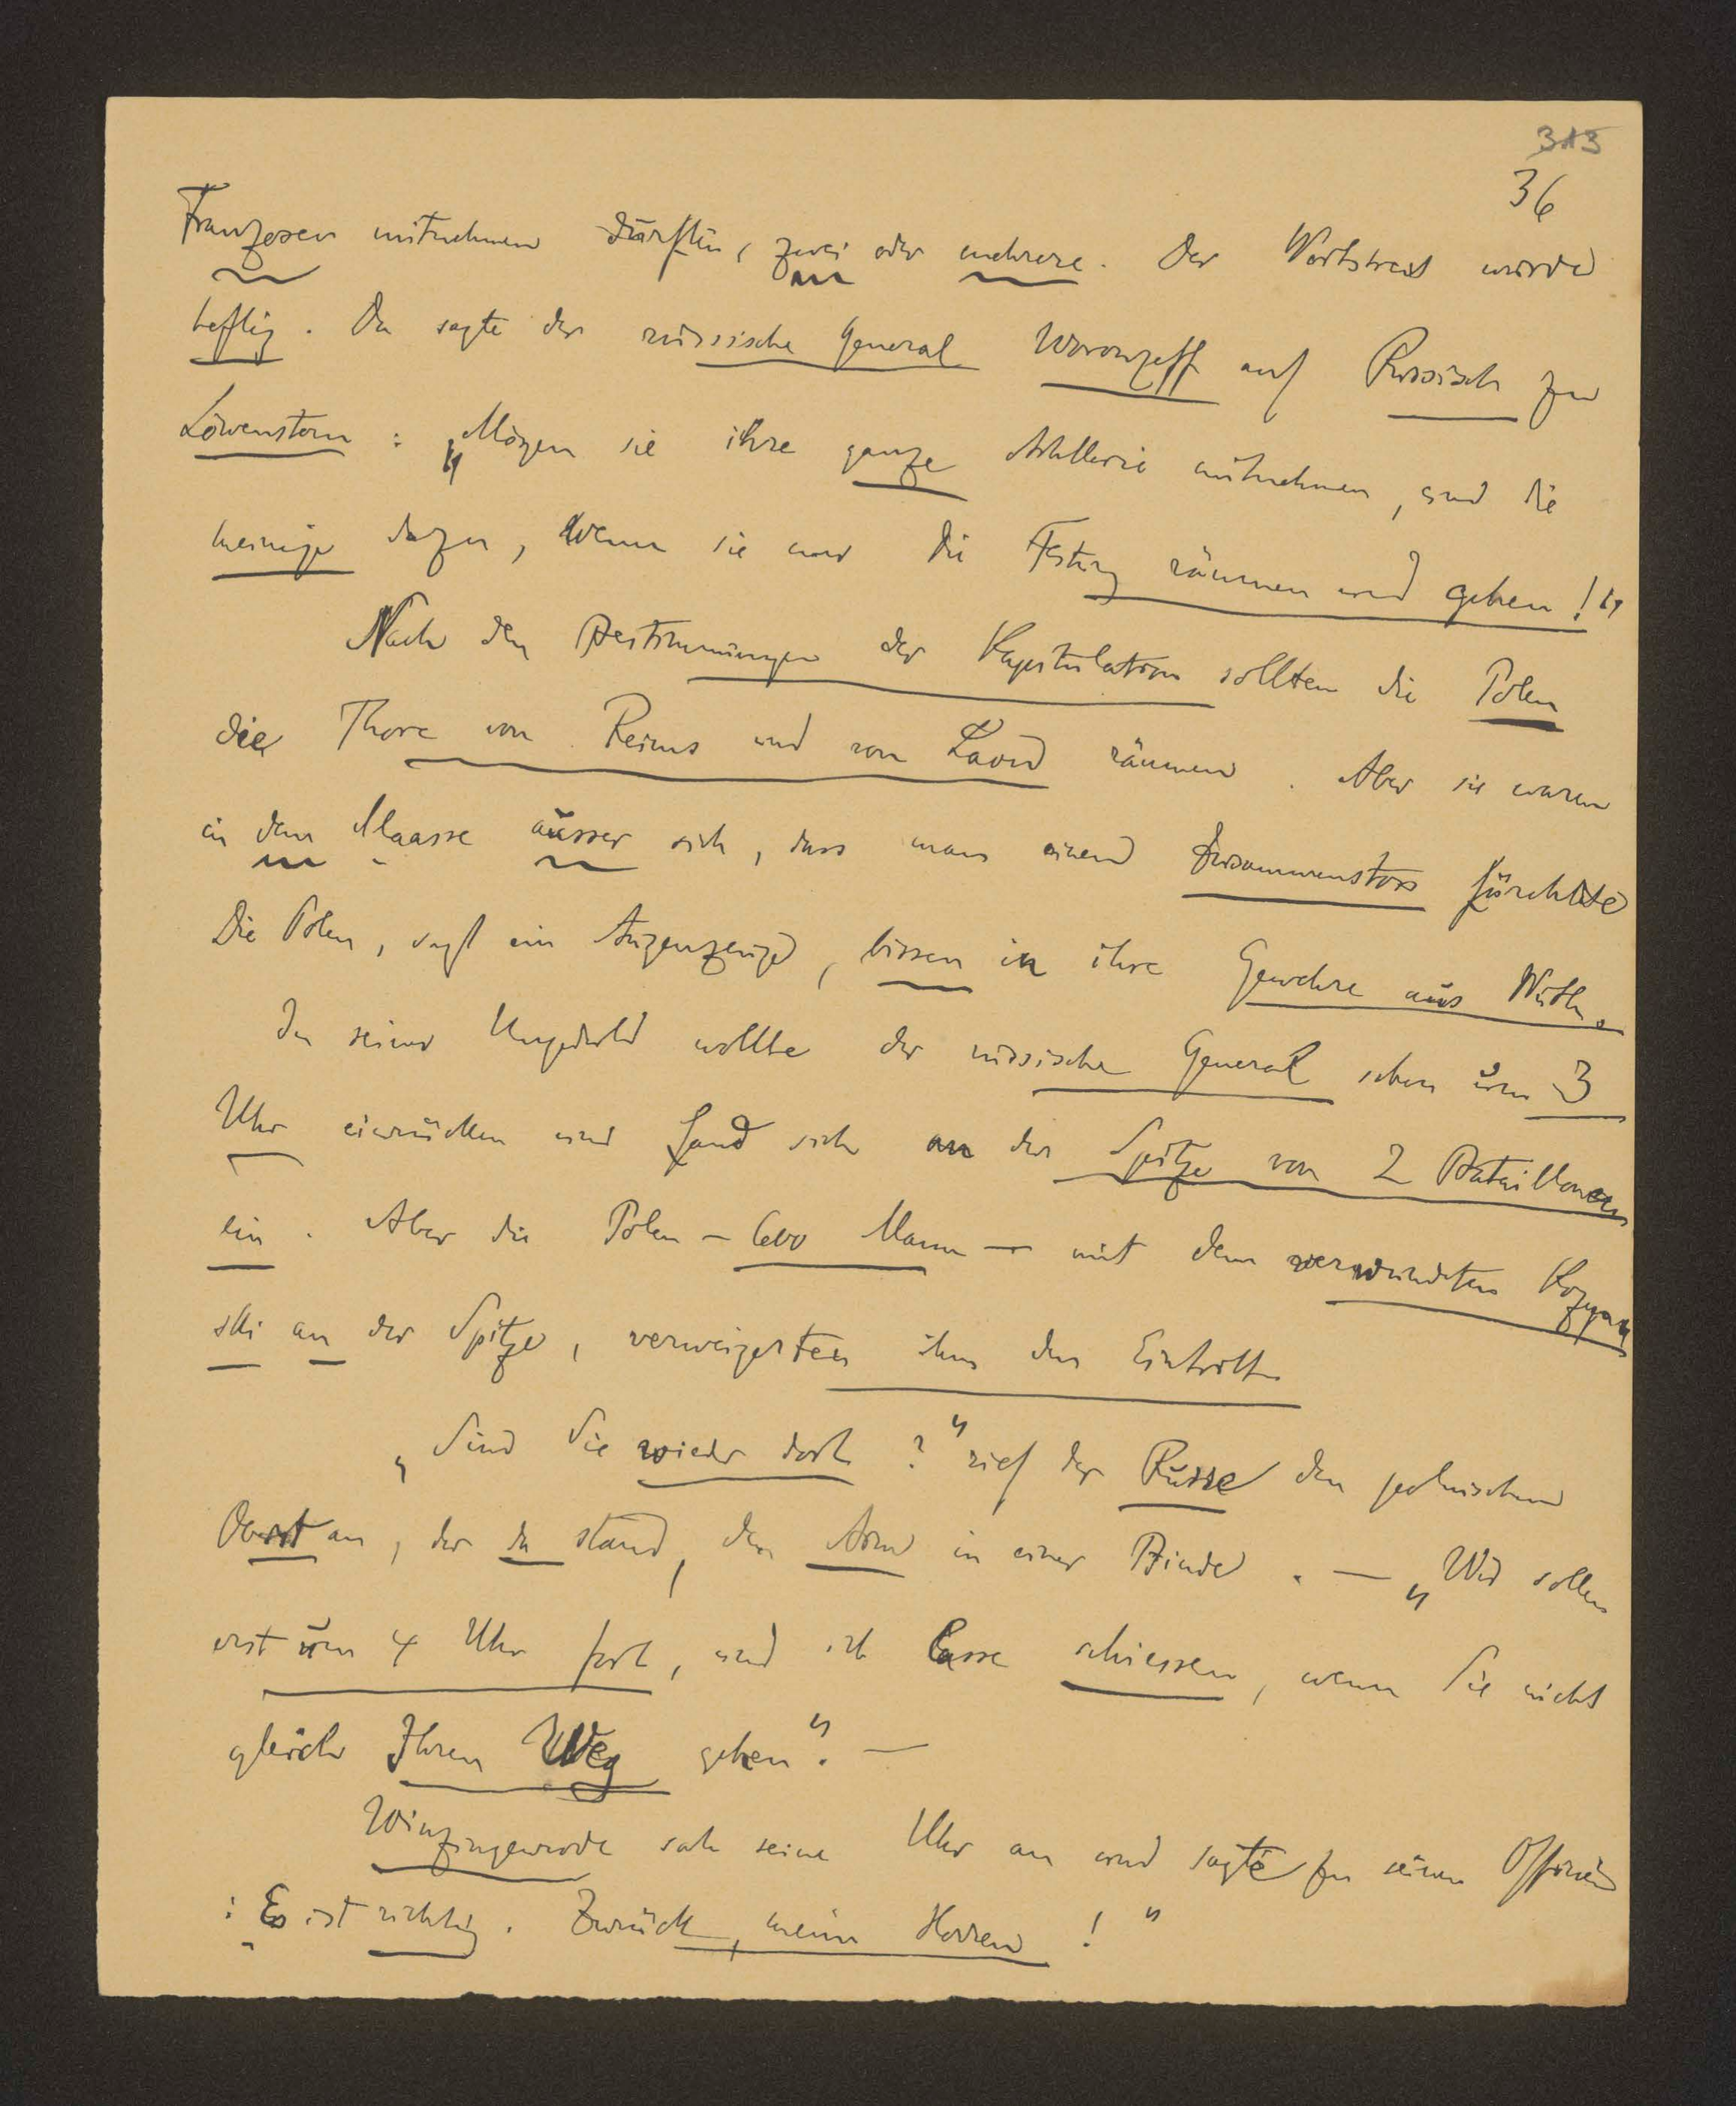 313
36
Franzosen mitnehmen dürften, zwei oder mehrere. Der Wortstreit wurde
heftig. Da sagte der russische General Woronzeff auf Russisch zu
Löwenstern: „Mögen sie ihre ganze Artillerie mitnehmen, und die
meinige dazu, wenn sie nur die Festung räumen und gehen!"
Nach den Bestimmungen der Kapitulation sollten die Polen
die Thore von Reims und von Laon räumen. Aber sie waren
in dem Maasse ausser sich, dass man einen Zusammenstoss fürchtete
Die Polen, sagt ein Augenzeuge, bissen in ihre Gewehre aus Wuth.
In seiner Ungeduld wollte der russische General schon um 3
Uhr einrücken und fand sich an der Spitze von 2 Bataillonen
ein. Aber die Polen – 600 Mann – mit dem verwundeten Kozyn
ski an der Spitze, verweigerten ihm den Eintritt.
„Sind Sie wieder dort?" rief der Russe den polnischen
Oberst an, der da stand, den Arm in einer Binde. – „Wir sollen
erst um 4 Uhr fort, und ich lasse schiessen, wenn Sie nicht
gleich Ihren Weg gehen". –
Winzingerode sah seine Uhr an und sagte zu seinen Offizieren
: Es ist richtig. Zurück, meine Herren!"